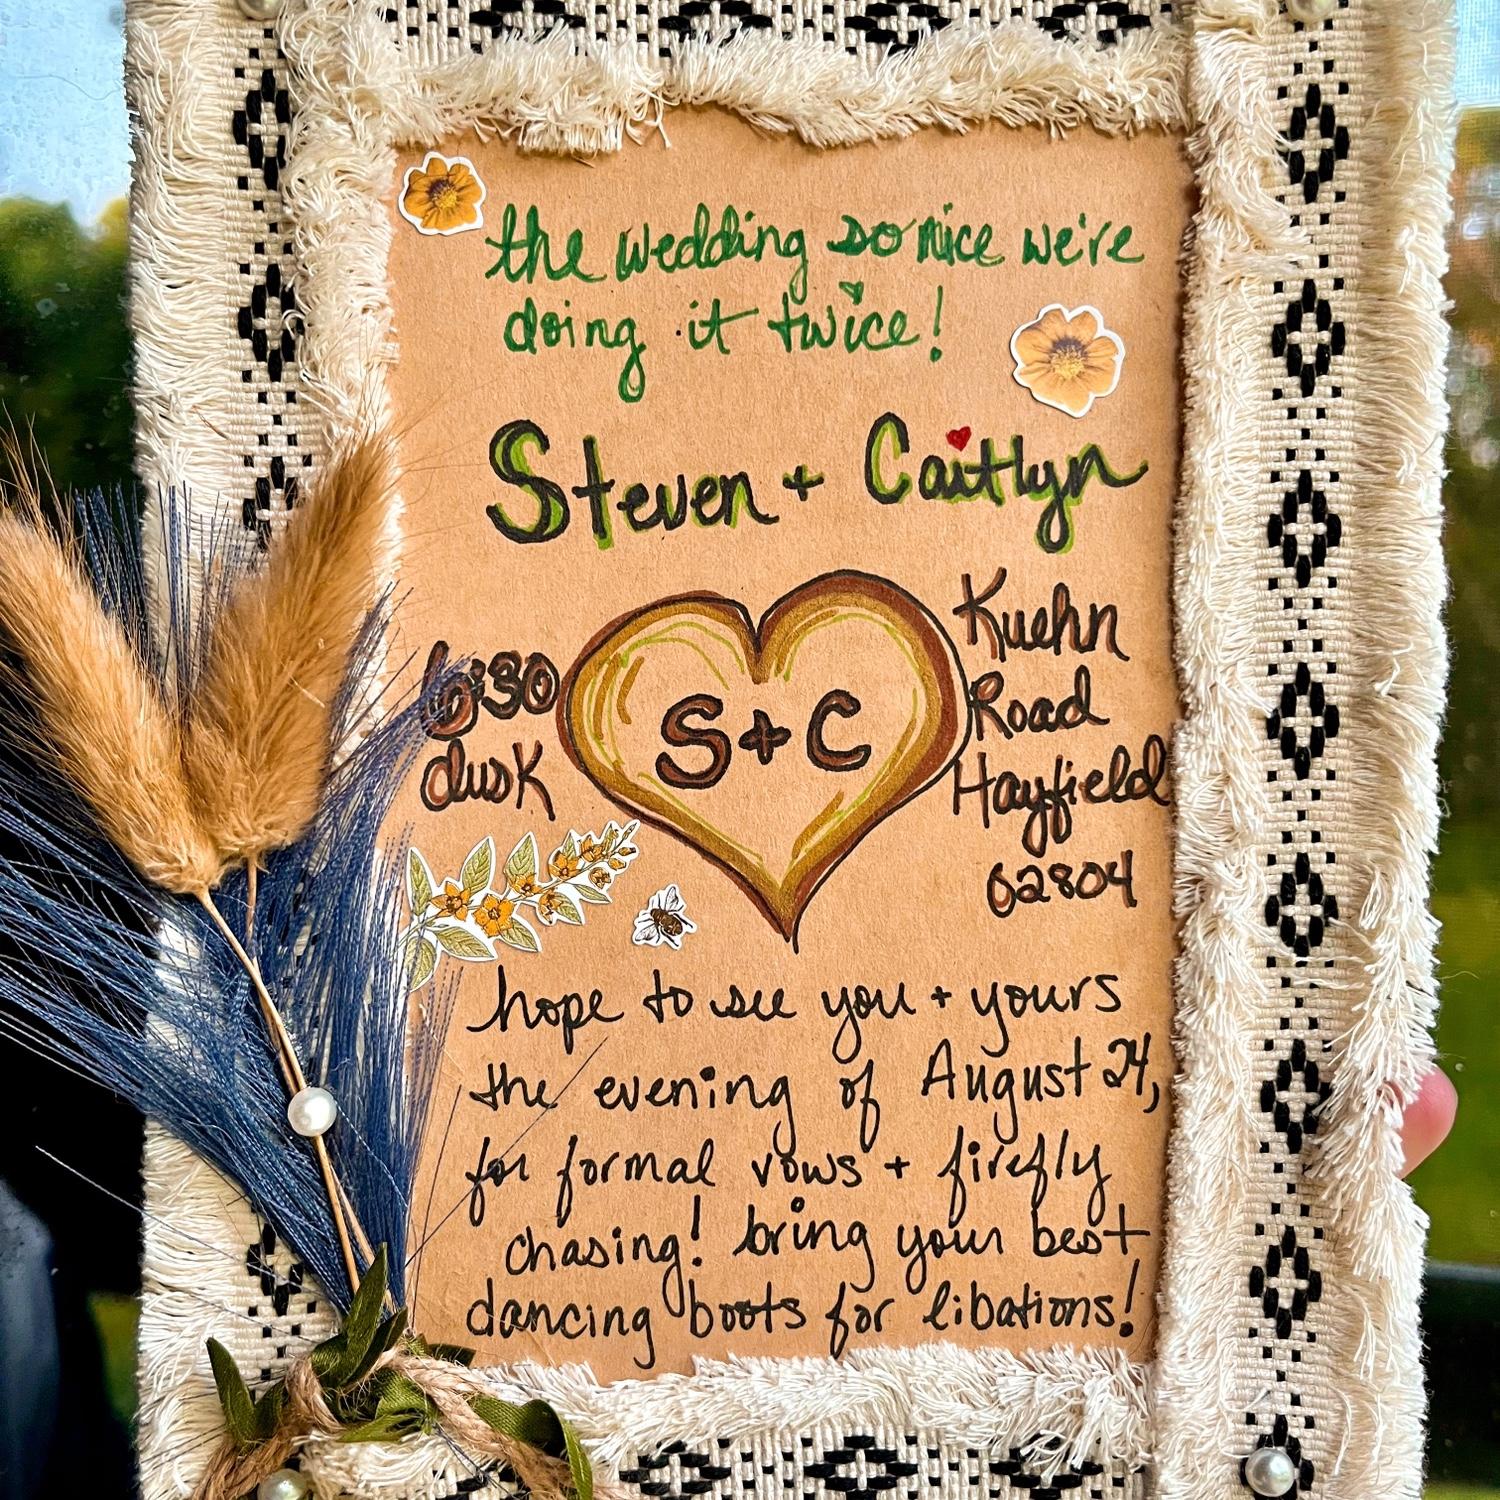 the wedding so nice we're
doing it twice!
Steven + Caitlyn
6:30
dusk
S+C
Kuehn
Road
Hayfield
02804
hope to see you + yours
the evening of August 24,
for formal vows + firefly
chasing! bring your best
dancing boots for libations!